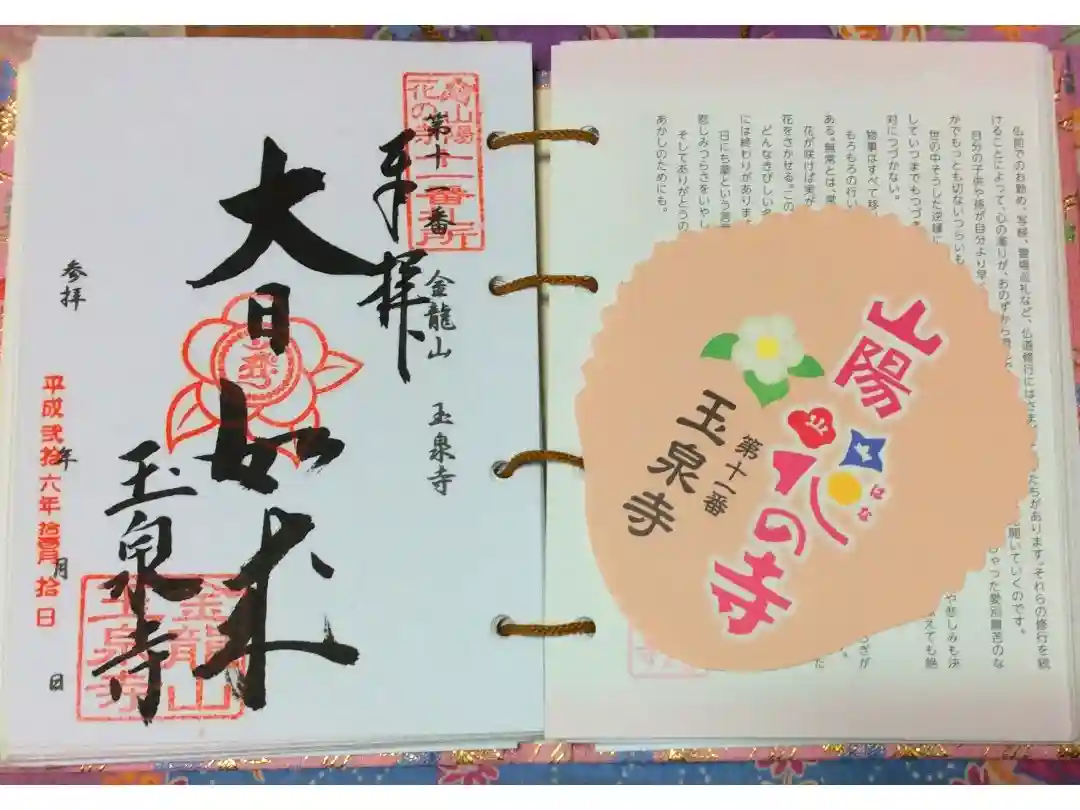 第十一番 金龍山 玉泉寺
山陽
花の寺
十一番札所
奉拝
大日如来
玉泉寺
金龍山
玉泉寺
参拝 年 月 日
平成弐拾六年拾壱月拾日
仏前でのお勤め、写経、霊場巡礼など、仏道修行にはさま たちがあります。それらの修行を続
けることによって、心の濁りが、おのずから 開いていくのです。
自分の子供や孫が自分より早く ちゃった愛別離苦のな
かでもっとも切ないつらいも
世の中そうした逆縁に や悲しみも決
していつまでもつづき えても絶
対につづかない。
物事はすべて移
もろもろの行い
ある。無常とは、常
花が咲けば実が
花をさかせる。この
どんなきびしい冬
には終わりがありま
日にち薬という言
悲しみつらさをいやし
そしてありがとうの
あかしのためにも。
山陽
花の寺
はな
第十一番
玉泉寺